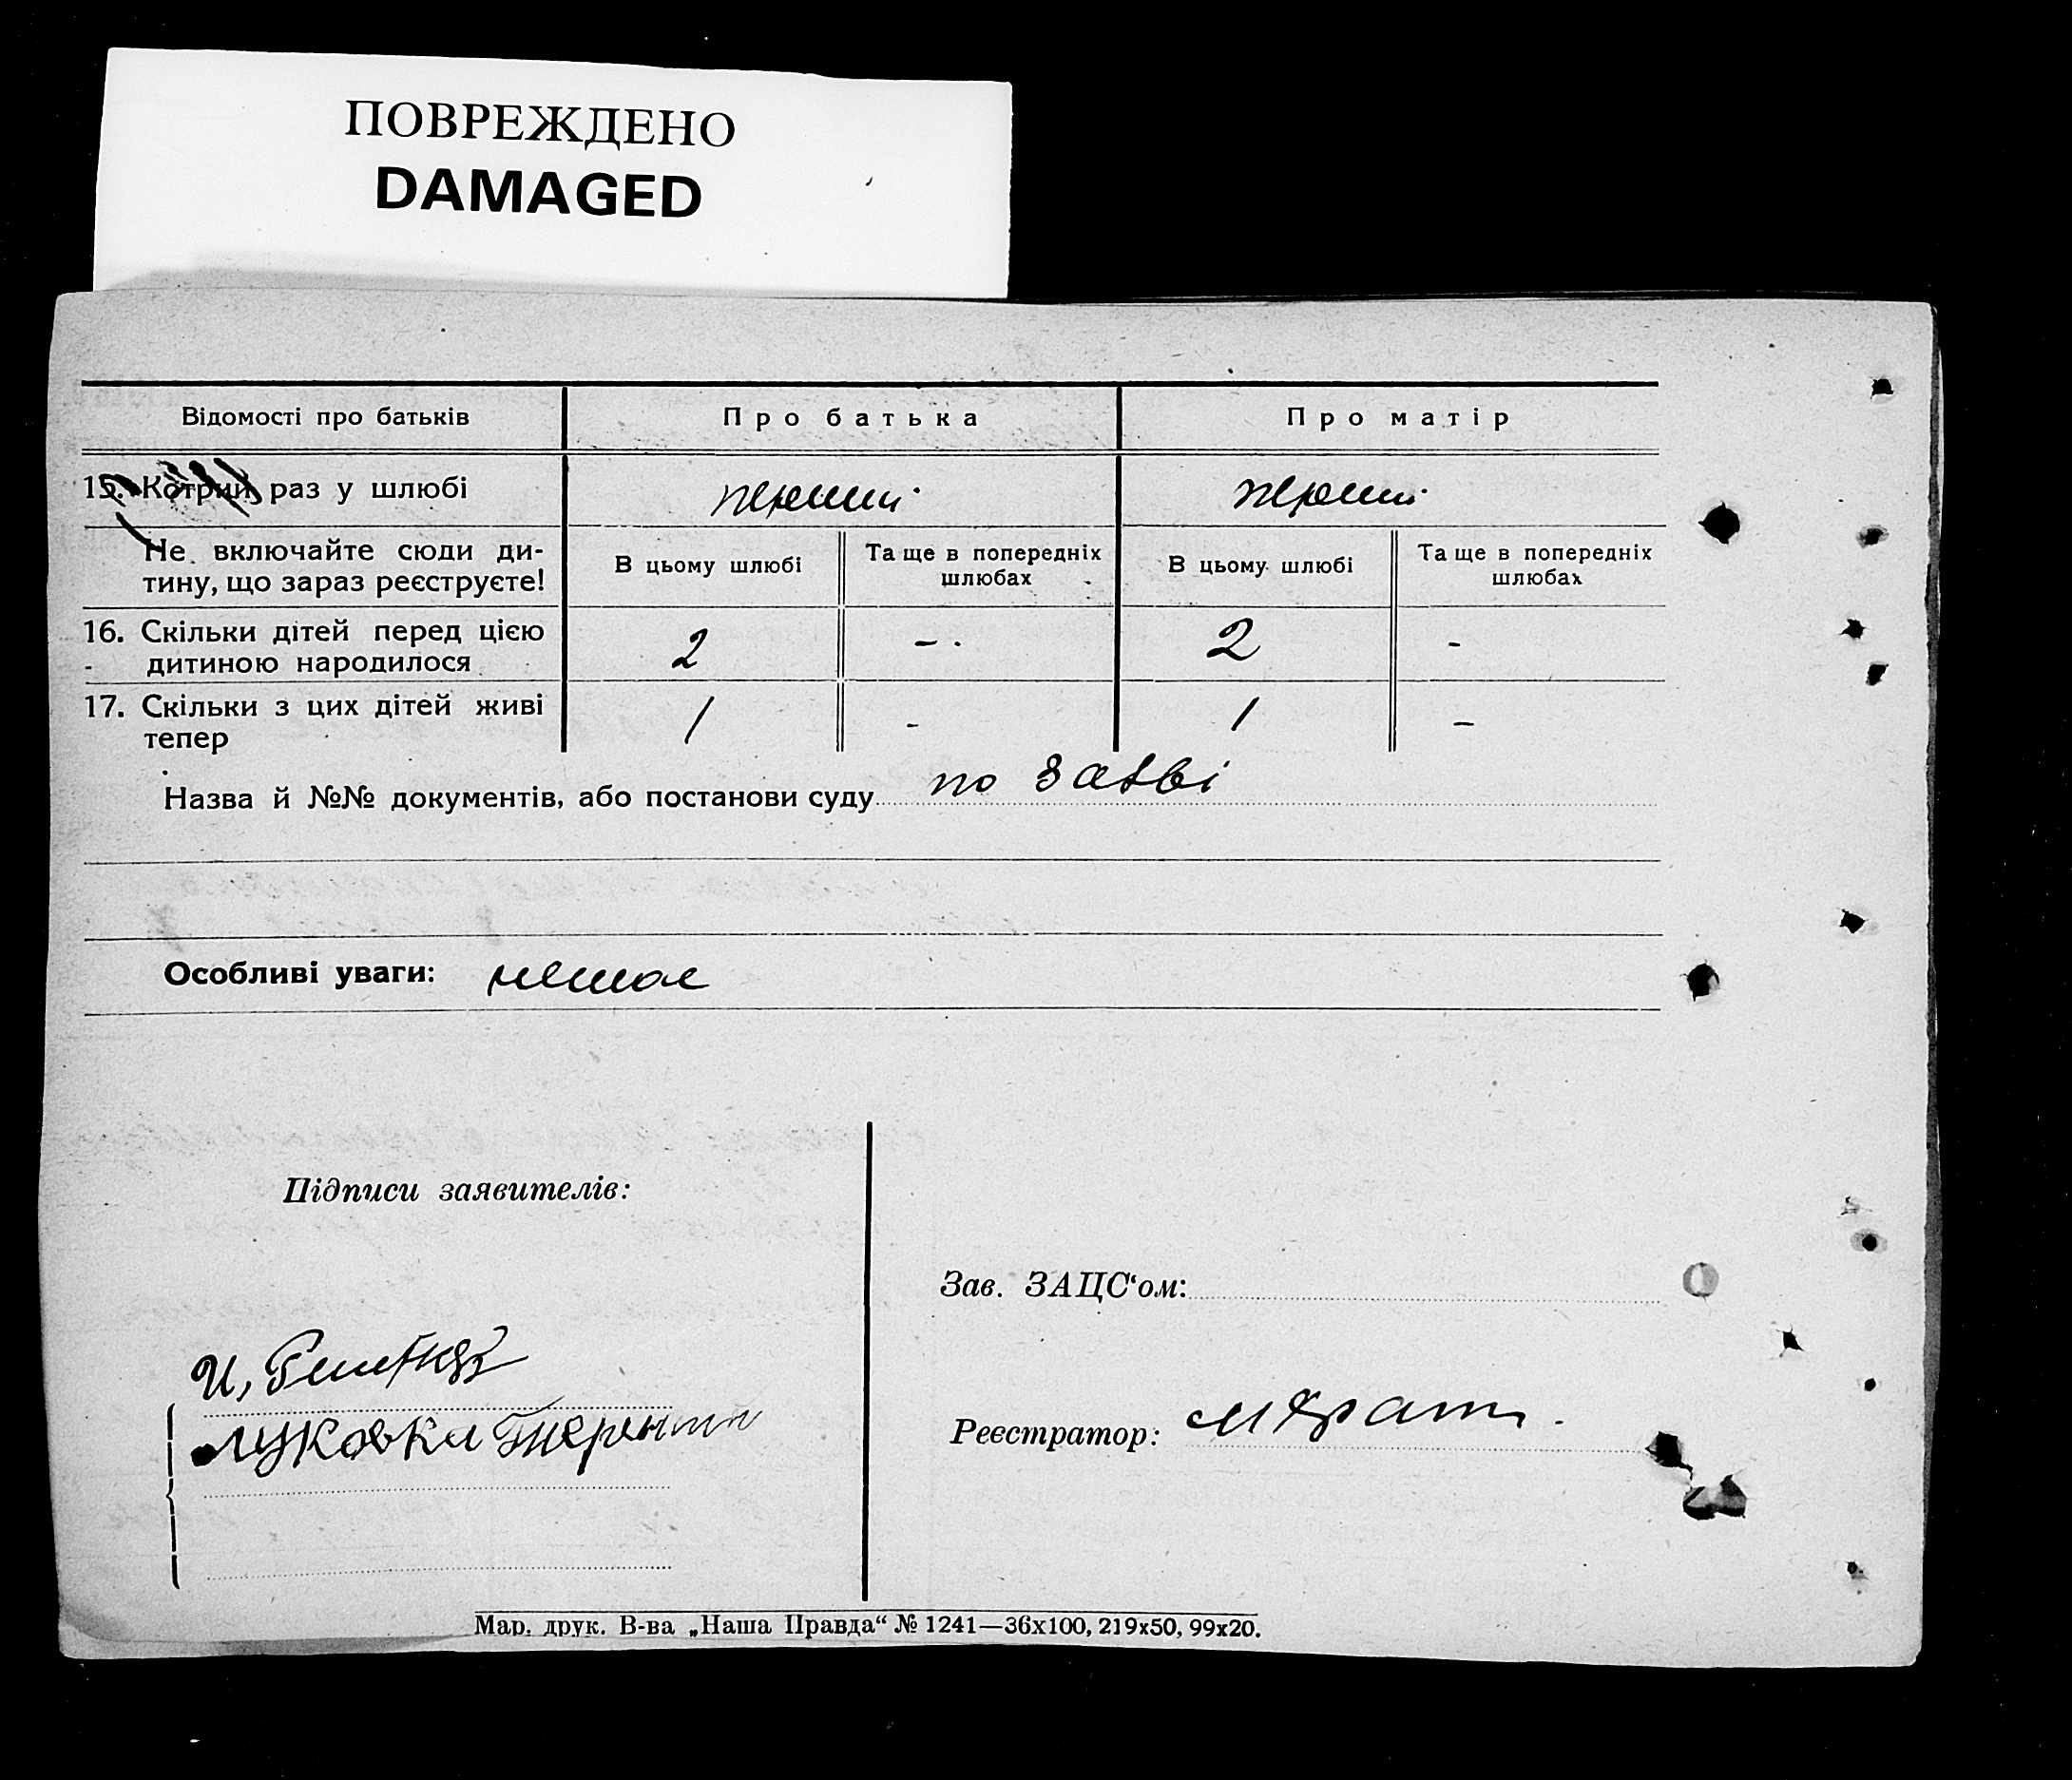 ПОВРЕЖДЕНО
DAMAGED
Відомості про батьків
Про батька
Про матір
15. Котрий раз у шлюбі
перший
перший
Не включайте сюди ди-
тину, що зараз реєструєте!
В цьому шлюбі
Та ще в попередніх
шлюбах
В цьому шлюбі
Та ще в попередніх
шлюбах
16. Скільки дітей перед цією
дитиною народилося
2
-
2
-
17. Скільки з цих дітей живі
тепер
1
-
1
-
Назва й №№ документів, або постанови суду по заяві
Особливі уваги: немає
Підписи заявителів:
Зав. ЗАЦС‘ом:
И,
Реєстратор:
Мар. друк. В-ва „Наша Правда“ № 1241—36х100, 219х50, 99х20.